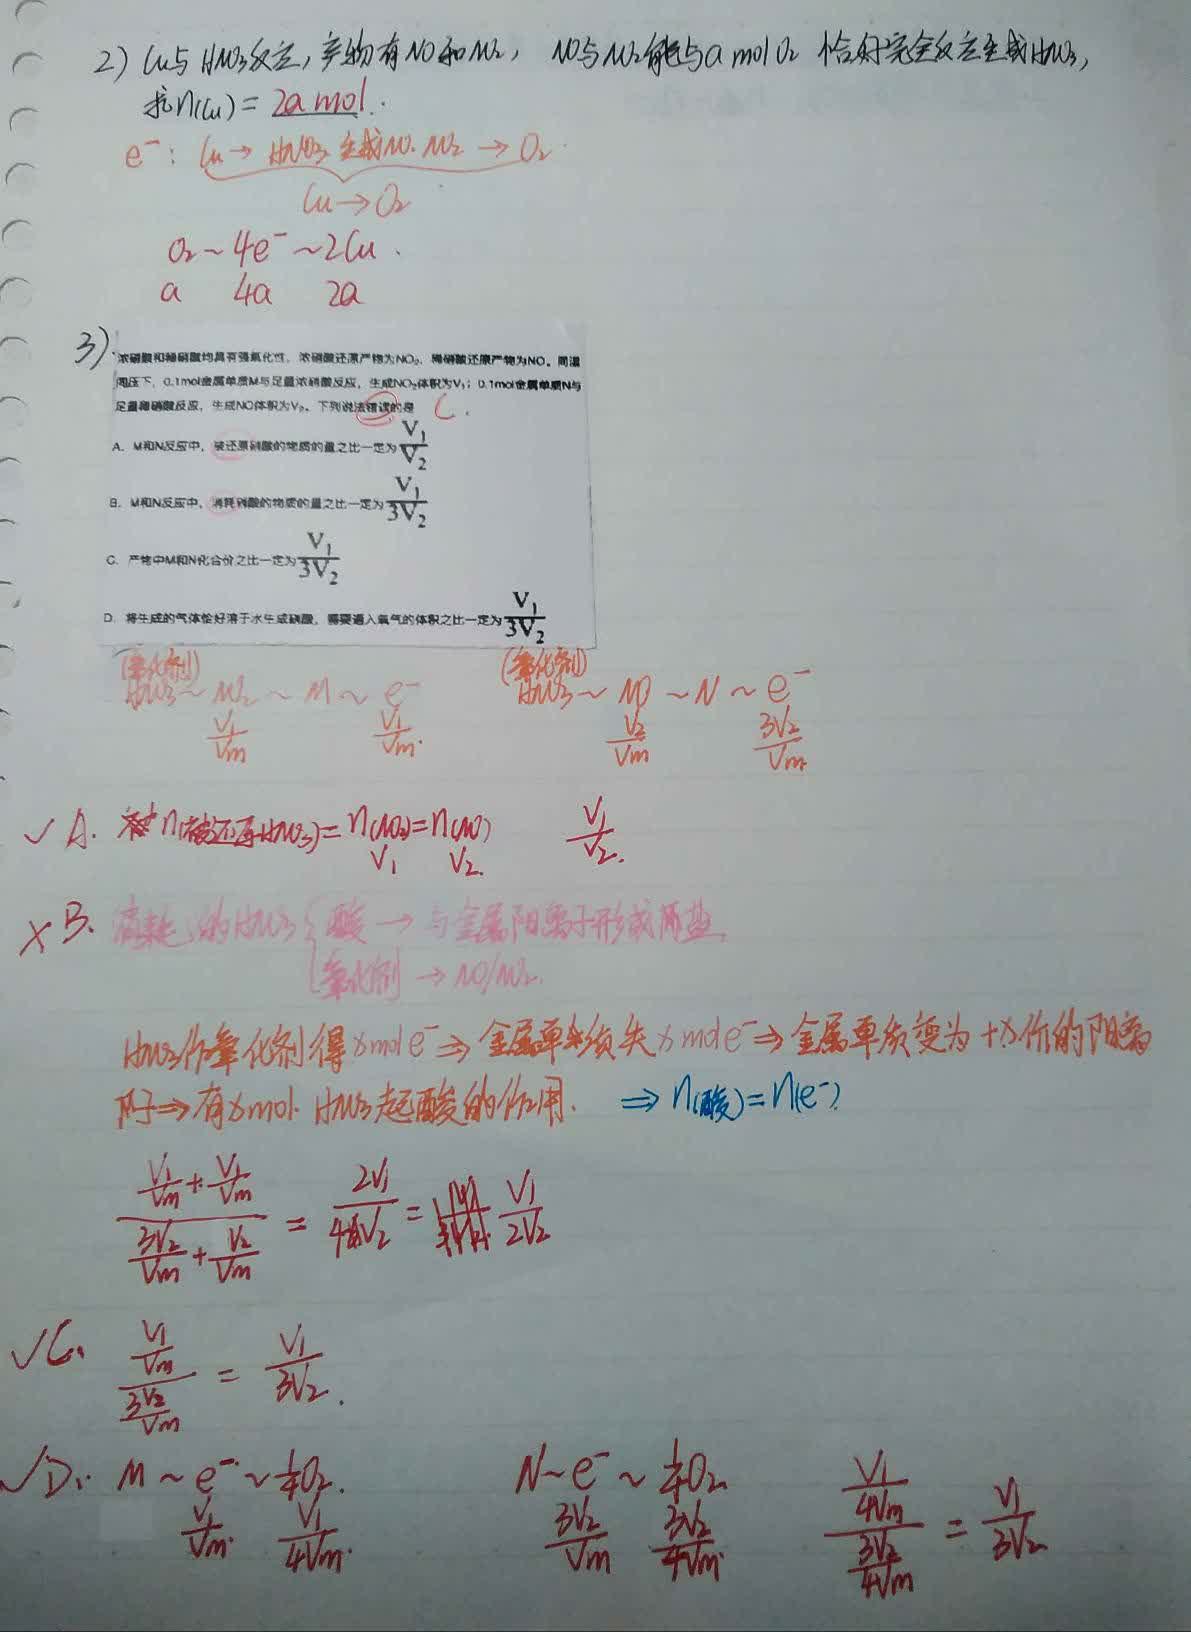 2) Cu与HNO3反应,产物有NO和NO2, NO与NO2能与a mol O2 恰好完全反应生成HNO3,
求n(Cu) = 2a mol.
e⁻: Cu → HNO3 生成NO、NO2 → O2.
Cu → O2
O2 ~ 4e⁻ ~ 2Cu.
a 4a 2a
3)
浓硝酸和稀硝酸均具有强氧化性,浓硝酸还原产物为NO2,稀硝酸还原产物为NO。同温
同压下,0.1mol金属单质M与足量浓硝酸反应,生成NO2体积为V1;0.1mol金属单质N与
足量稀硝酸反应,生成NO体积为V2。下列说法错误的是 C.
A. M和N反应中,被还原硝酸的物质的量之比一定为 V1/V2
B. M和N反应中,消耗硝酸的物质的量之比一定为 V1/3V2
C. 产物中M和N化合价之比一定为 V1/3V2
D. 将生成的气体恰好溶于水生成硝酸,需要通入氧气的体积之比一定为 V1/3V2
(氧化剂) (氧化剂)
HNO3 ~ NO2 ~ M ~ e⁻ HNO3 ~ NO ~ N ~ e⁻
V1/Vm V1/Vm. V2/Vm 3V2/Vm
✓A. n(被还原HNO3) = n(NO2) = n(NO) V1/V2.
V1 V2.
×B. 消耗的HNO3 { 酸 → 与金属阳离子形成硝盐
氧化剂 → NO/NO2.
HNO3作氧化剂得x mol e⁻ ⇒ 金属单质失x mol e⁻ ⇒ 金属单质变为+x价的阳离
子 ⇒ 有x mol HNO3起酸的作用. ⇒ n(酸) = n(e⁻)
(V1/Vm + V1/Vm)/(3V2/Vm + V2/Vm) = 2V1/4V2 = V1/2V2
✓C. (V1/Vm)/(3V2/Vm) = V1/3V2.
✓D. M ~ e⁻ ~ 1/4O2. N ~ e⁻ ~ 1/4O2 (V1/4Vm)/(3V2/4Vm) = V1/3V2
V1/Vm. V1/4Vm. 3V2/Vm 3V2/4Vm.